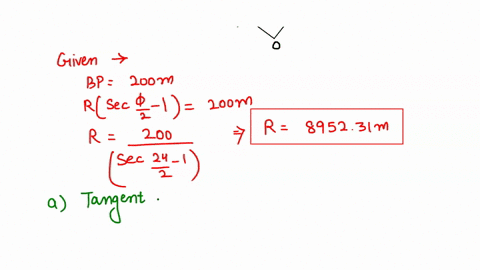 O
Given →
BP = 200m
R(sec ϕ/2 - 1) = 200m
R = 200/(sec 24/2 - 1) ⇒ R = 8952.31m
a) Tangent .